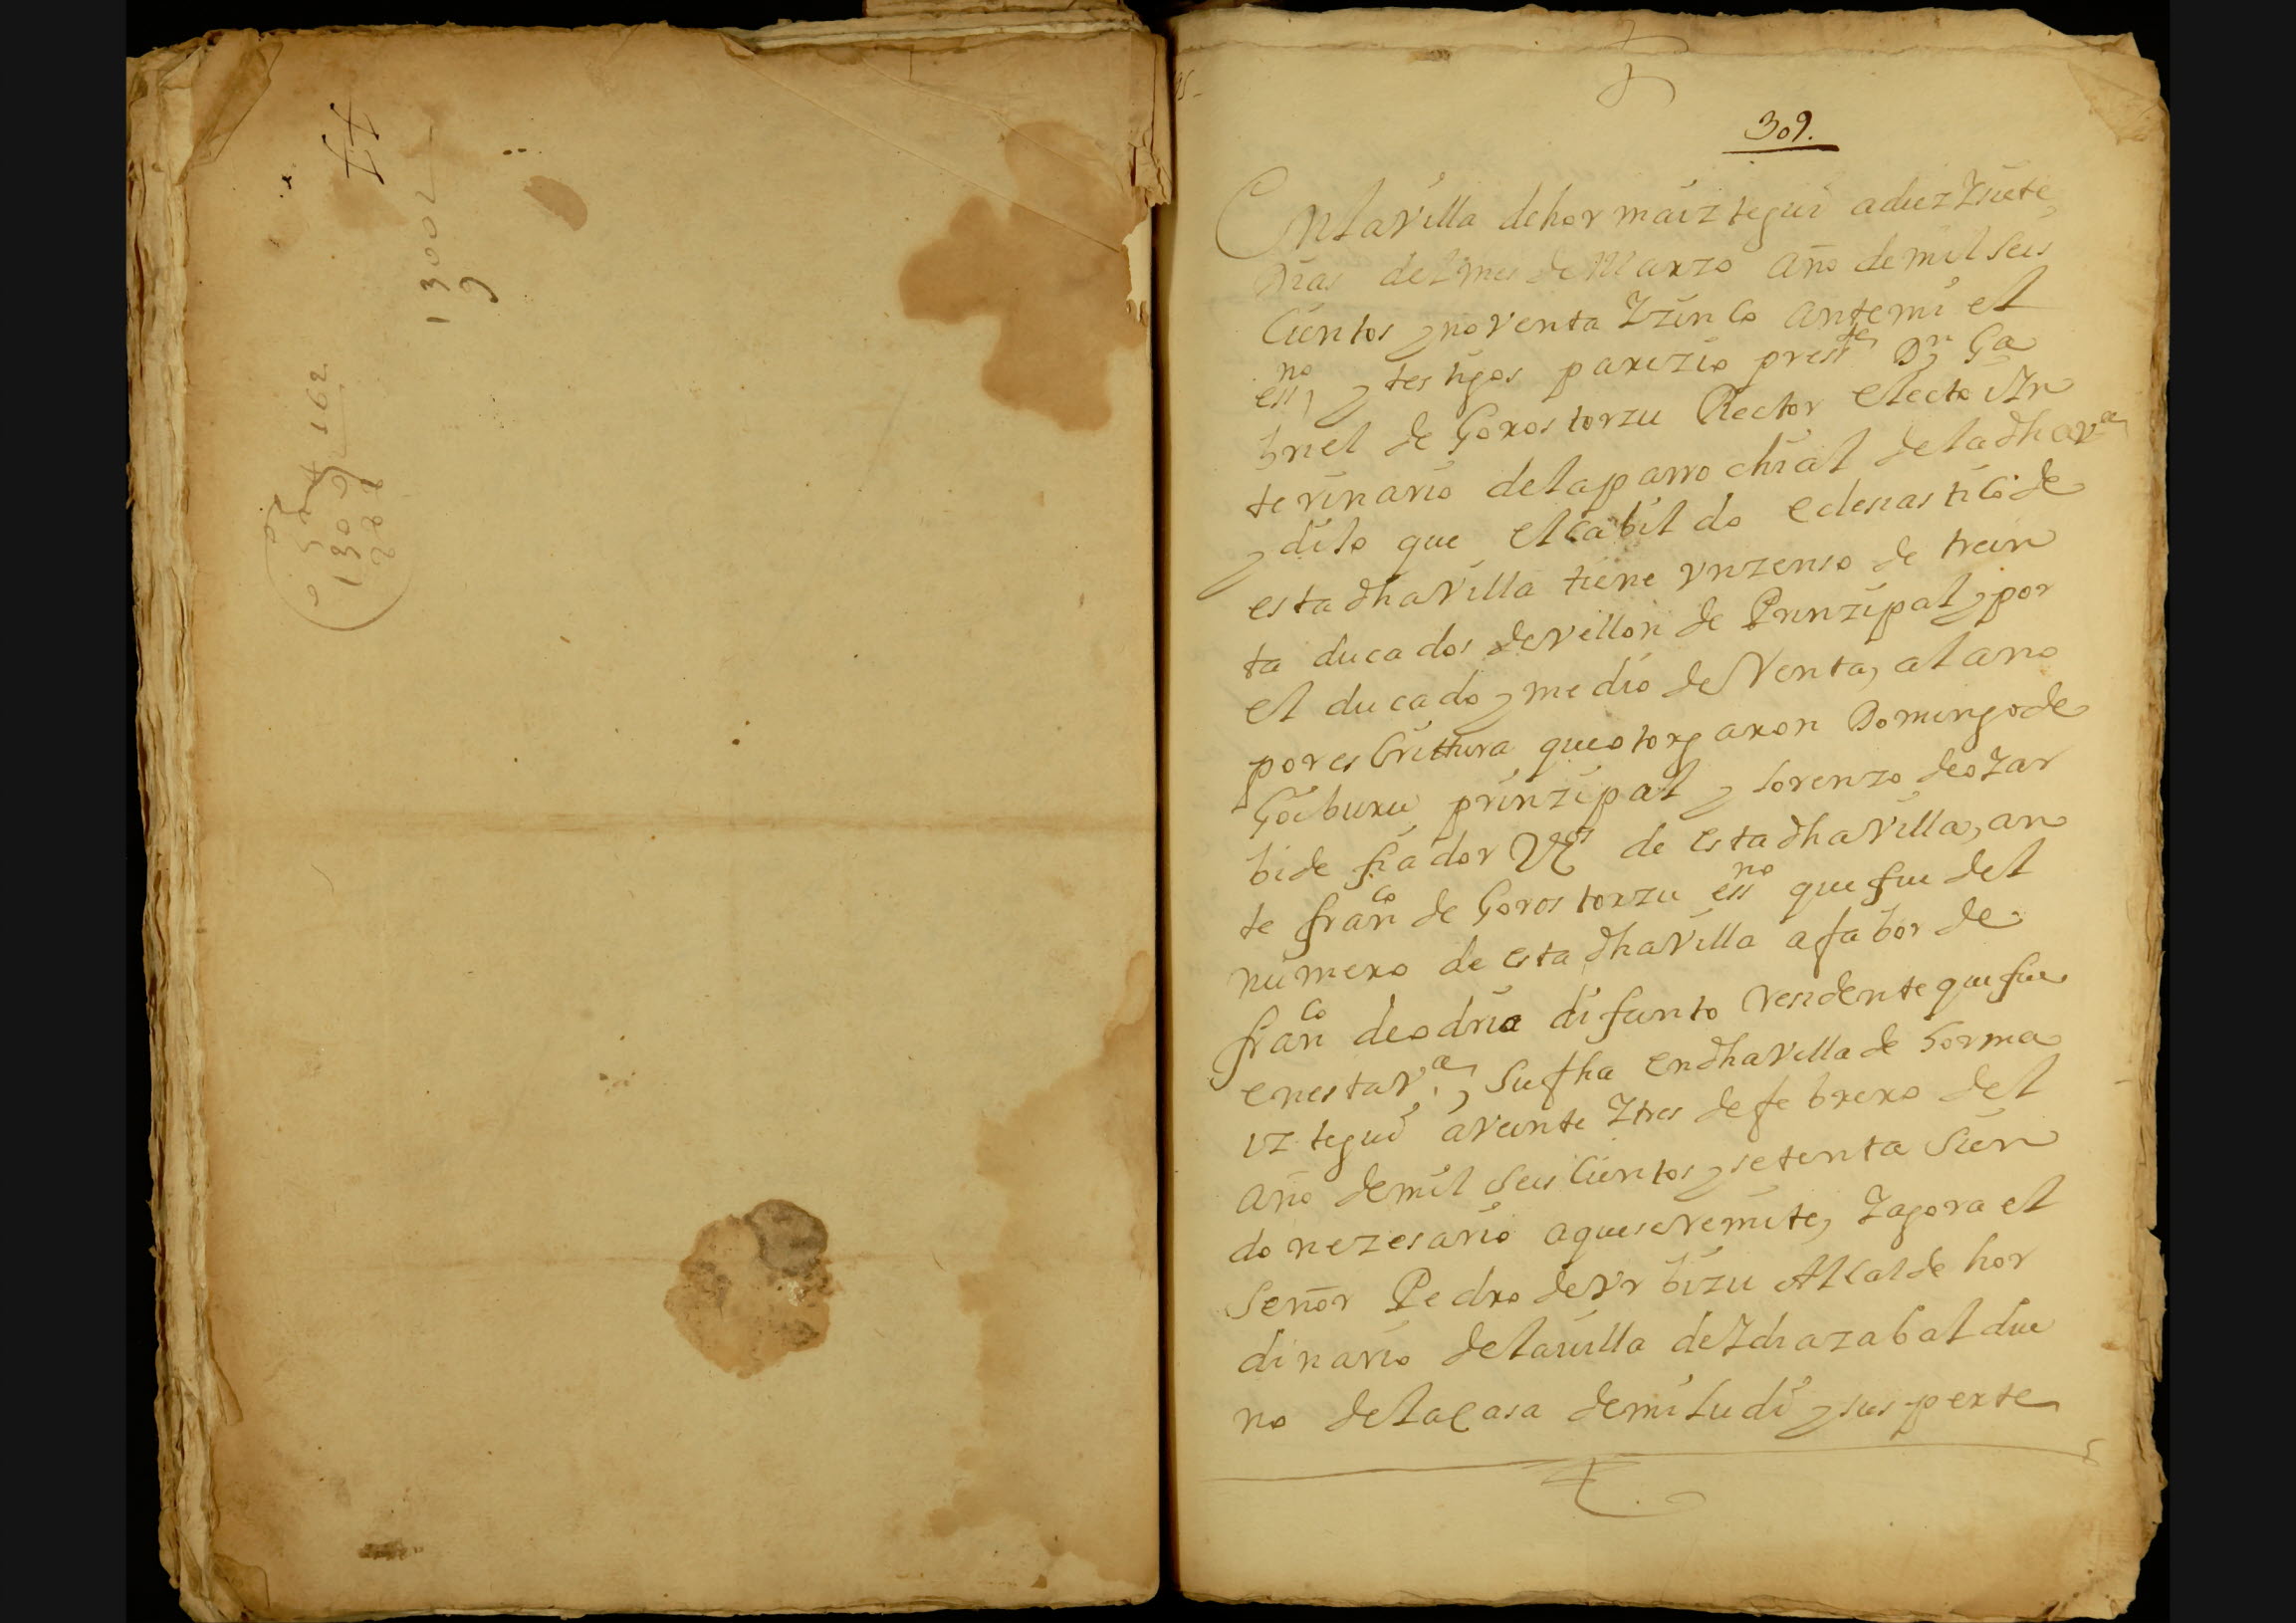 309.
En la Villa de hormaiztegui a diez Y siete
dias del mes de Marzo año de mil seis
Cientos y noventa Y Zinco ante mi el
essno y testigos parezio presste Dn Ga
briel de Gorostorzu Rector electo iIn
terinario de la parrochial de la dha Va
y dijo que el Cabildo eclesiastico de
esta dha Villa tiene Vn zenso de trein
ta ducados de Vellon de Prinzipal y por
el ducado y medio de Renta, al ano
por esCrittura que otorgaron Domingo de
Goiburu prinzipal y Lorenzo de oZar
bide fiador Vos de esta dha Villa, an
te franco de Gorostorzu essno que fue del
numero de esta dha Villa a fabor de
franco de odria difunto residente que fue
en esta Va. y su fha en dha Villa de horma
iztegui a Veinte Y tres de febrero del
año de mil seis Cientos y setenta sien
do nezesario a que se remite, Y agora el
Señor Pedro de Vrbizu Alcalde hor
dinario de la villa de Ydiazabal due
no de la Casa de miludi y sus perte